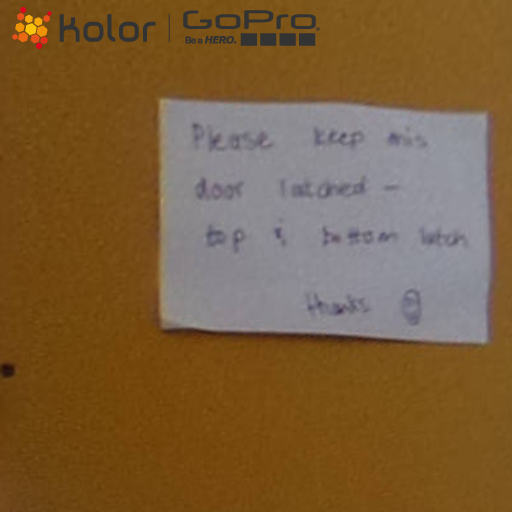 kolor GoPro
Be a HERO.
Please keep this
door latched -
top & bottom latch
thanks